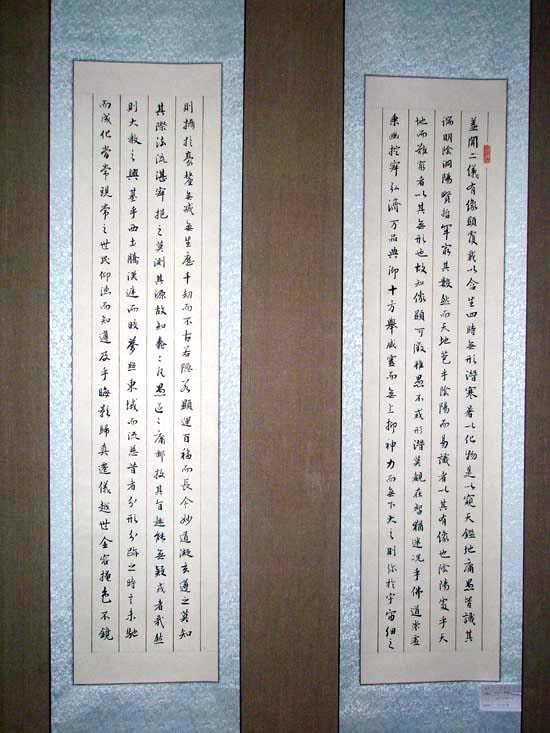 盖聞二儀有像顯覆載以含生四時無形潛寒暑以化物是以窺天鑑地庸愚皆識其
端明陰洞陽賢哲罕窮其數然而天地苞乎陰陽而易識者以其有像也陰陽處乎天
地而難窮者以其無形也故知像顯可徵雖愚不惑形潛莫覩在智猶迷況乎佛道崇虛
乘幽控寂弘濟万品典御十方舉威靈而無上抑神力而無下大之則弥於宇宙細之
則攝於豪釐無滅無生歷千劫而不古若隱若顯運百福而長今妙道凝玄遵之莫知
其際法流湛寂挹之莫測其源故知蠢〻凡愚區〻庸鄙投其旨趣能無疑或者哉然
則大教之興基乎西土騰漢庭而皎夢照東域而流慈昔者分形分跡之時言未馳
而成化當常現常之世民仰德而知遵及乎晦影歸真遷儀越世金容掩色不鏡